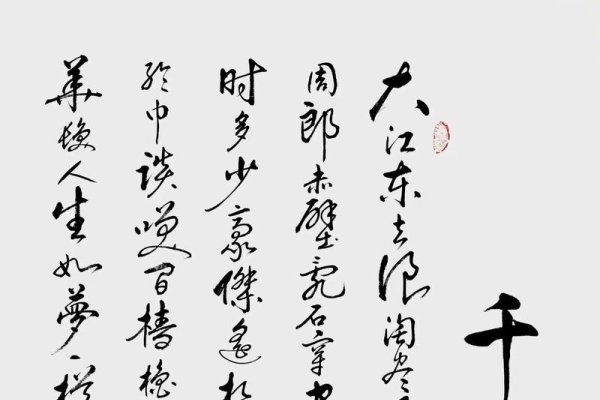 千
大江东去浪淘尽
周郎赤壁乱石穿空
时多少豪傑遥想
纶巾谈笑间樯橹
華发人生如夢一樽